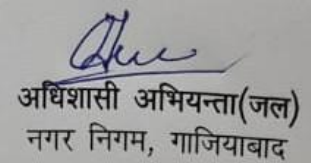 अधिशासी अभियन्ता(जल)
नगर निगम, गाजियाबाद